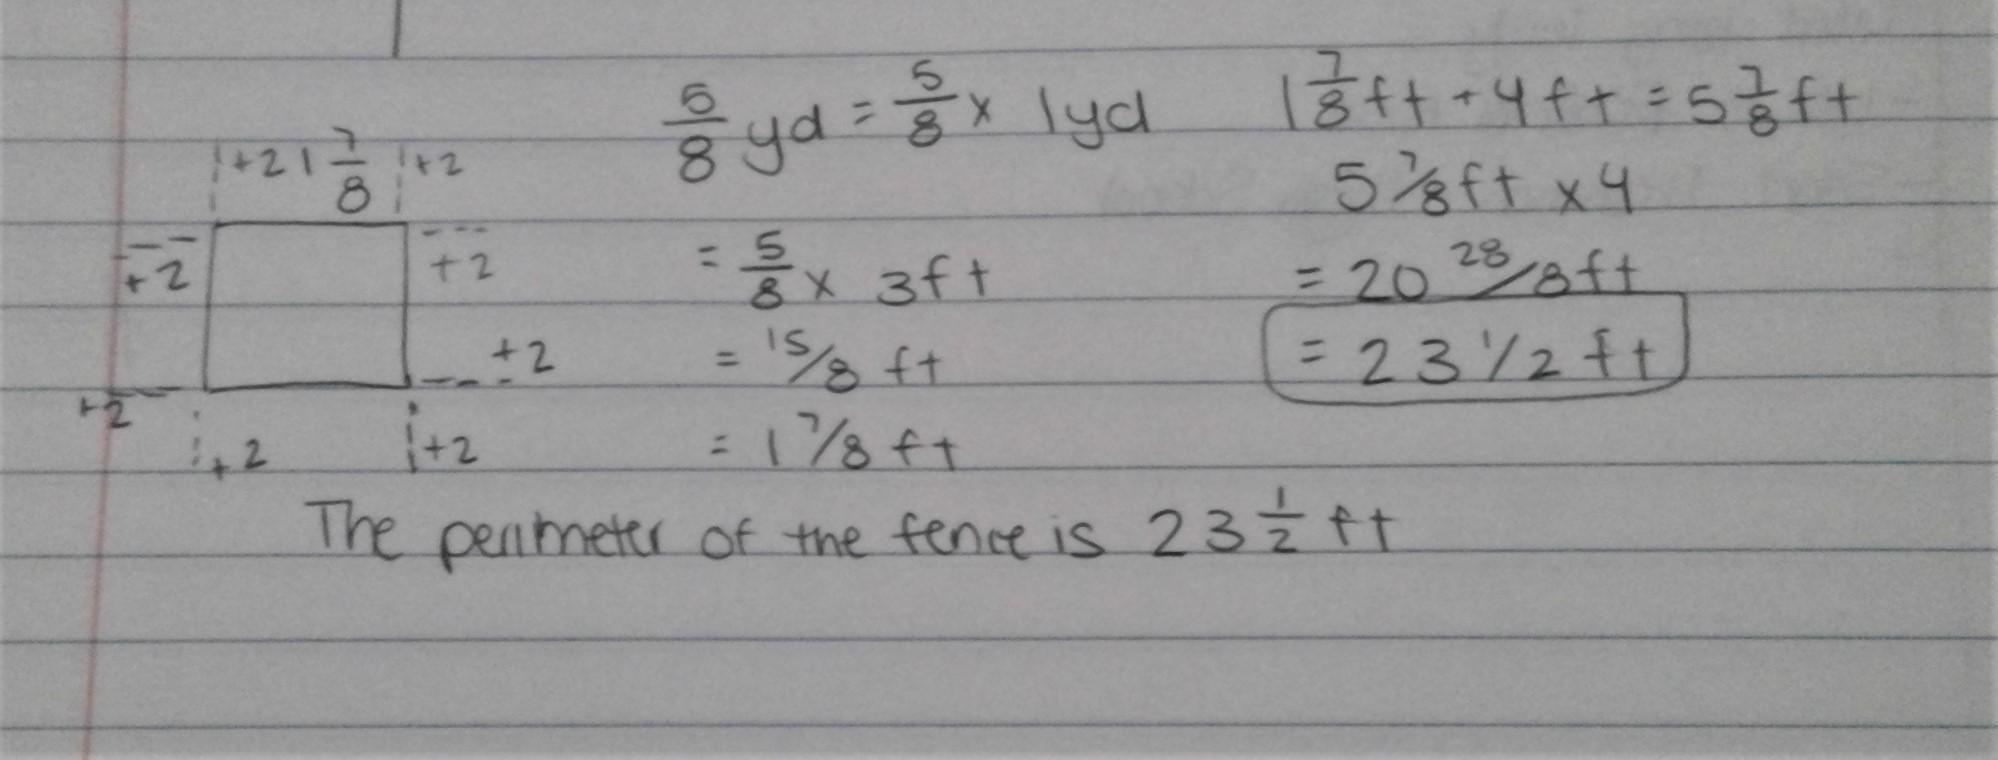 5/8 yd = 5/8 x 1yd
= 5/8 x 3ft
= 15/8 ft
= 1 7/8 ft
1 7/8 ft + 4ft = 5 7/8 ft
5 7/8 ft x 4
= 20 28/8 ft
= 23 1/2 ft
+2 1 7/8 +2
+2 +2
+2
+2
+2 +2
The perimeter of the fence is 23 1/2 ft